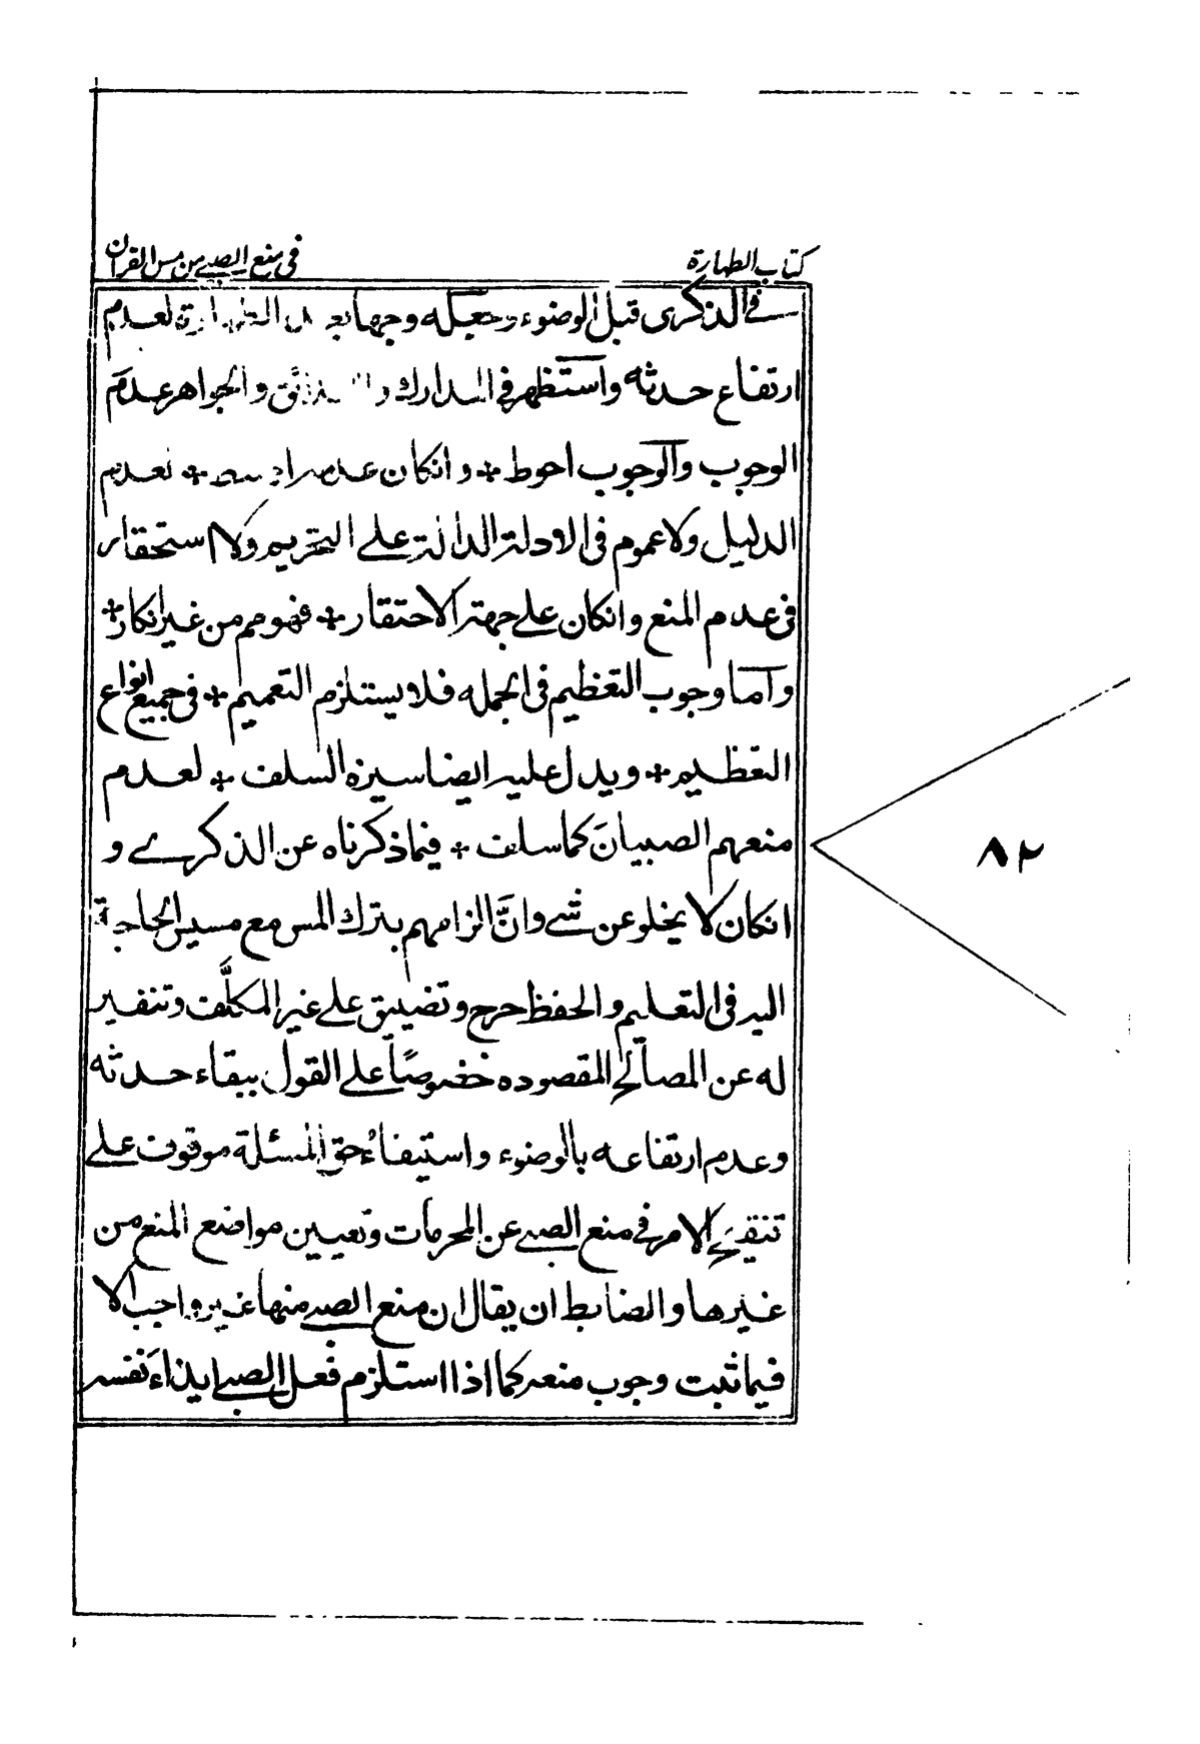 كتاب الطهارة
في منع الصبي من مس القرآن
في الذكرى قبل الوضوء وجعل له وجها بعد الطهارة لعدم
ارتفاع حدثه واستظهر في المدارك والحدائق والجواهر عدم
الوجوب والوجوب احوط * وانكان عدمه * لعدم
الدليل ولا عموم في الادلة الدالة على التحريم ولا استحقار
في عدم المنع وانكان على جهة الاحتقار * فهو محرم من غير انكار *
واما وجوب التعظيم في الجمله فلا يستلزم التعميم * في جميع انواع
التعظيم * ويدل عليه ايضا سيرة السلف * لعدم
منعهم الصبيان كما سلف * فيما ذكرناه عن الذكرى و
انكان لا يخلو عن شي وانّ الزامهم بترك المس مع مسيس الحاجة
اليه في التعليم والحفظ حرج وتضييق على غير المكلّف وتنفير
له عن المصالح المقصوده خصوصًا على القول ببقاء حدثه
وعدم ارتفاعه بالوضوء واستيفاءُ حق المسئلة موقوف على
تنقيح الامر في منع الصبي عن المحرمات وتعيين مواضع المنع من
غيرها والضابط ان يقال ان منع الصبي منها غير واجب الا
فيما ثبت وجوب منعه كما اذا استلزم فعل الصبي ايذاءَ نفسه
٨٢